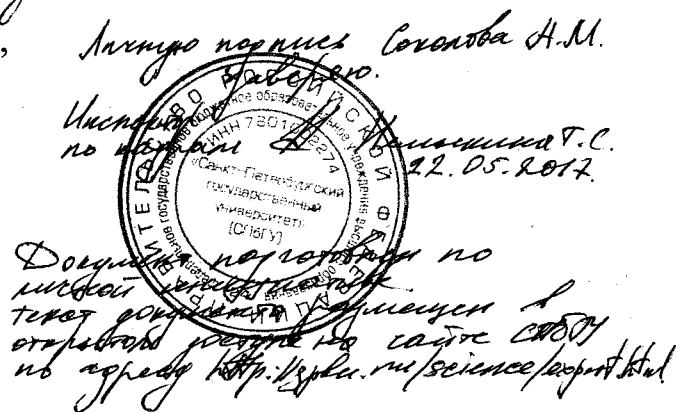 Личную подпись Соколова А.М.
заверяю.
Инспектор
по кадрам Т.С.
22.05.2017.
ПРАВИТЕЛЬСТВО РОССИЙСКОЙ ФЕДЕРАЦИИ
ИНН 7801002274
«Санкт-Петербургский
государственный
университет»
(СПбГУ)
Документ подготовлен по
личной инициативе
текст документа размещен в
открытом доступе на сайте СПбГУ
по адресу http://spbu.ru/science/expert.html